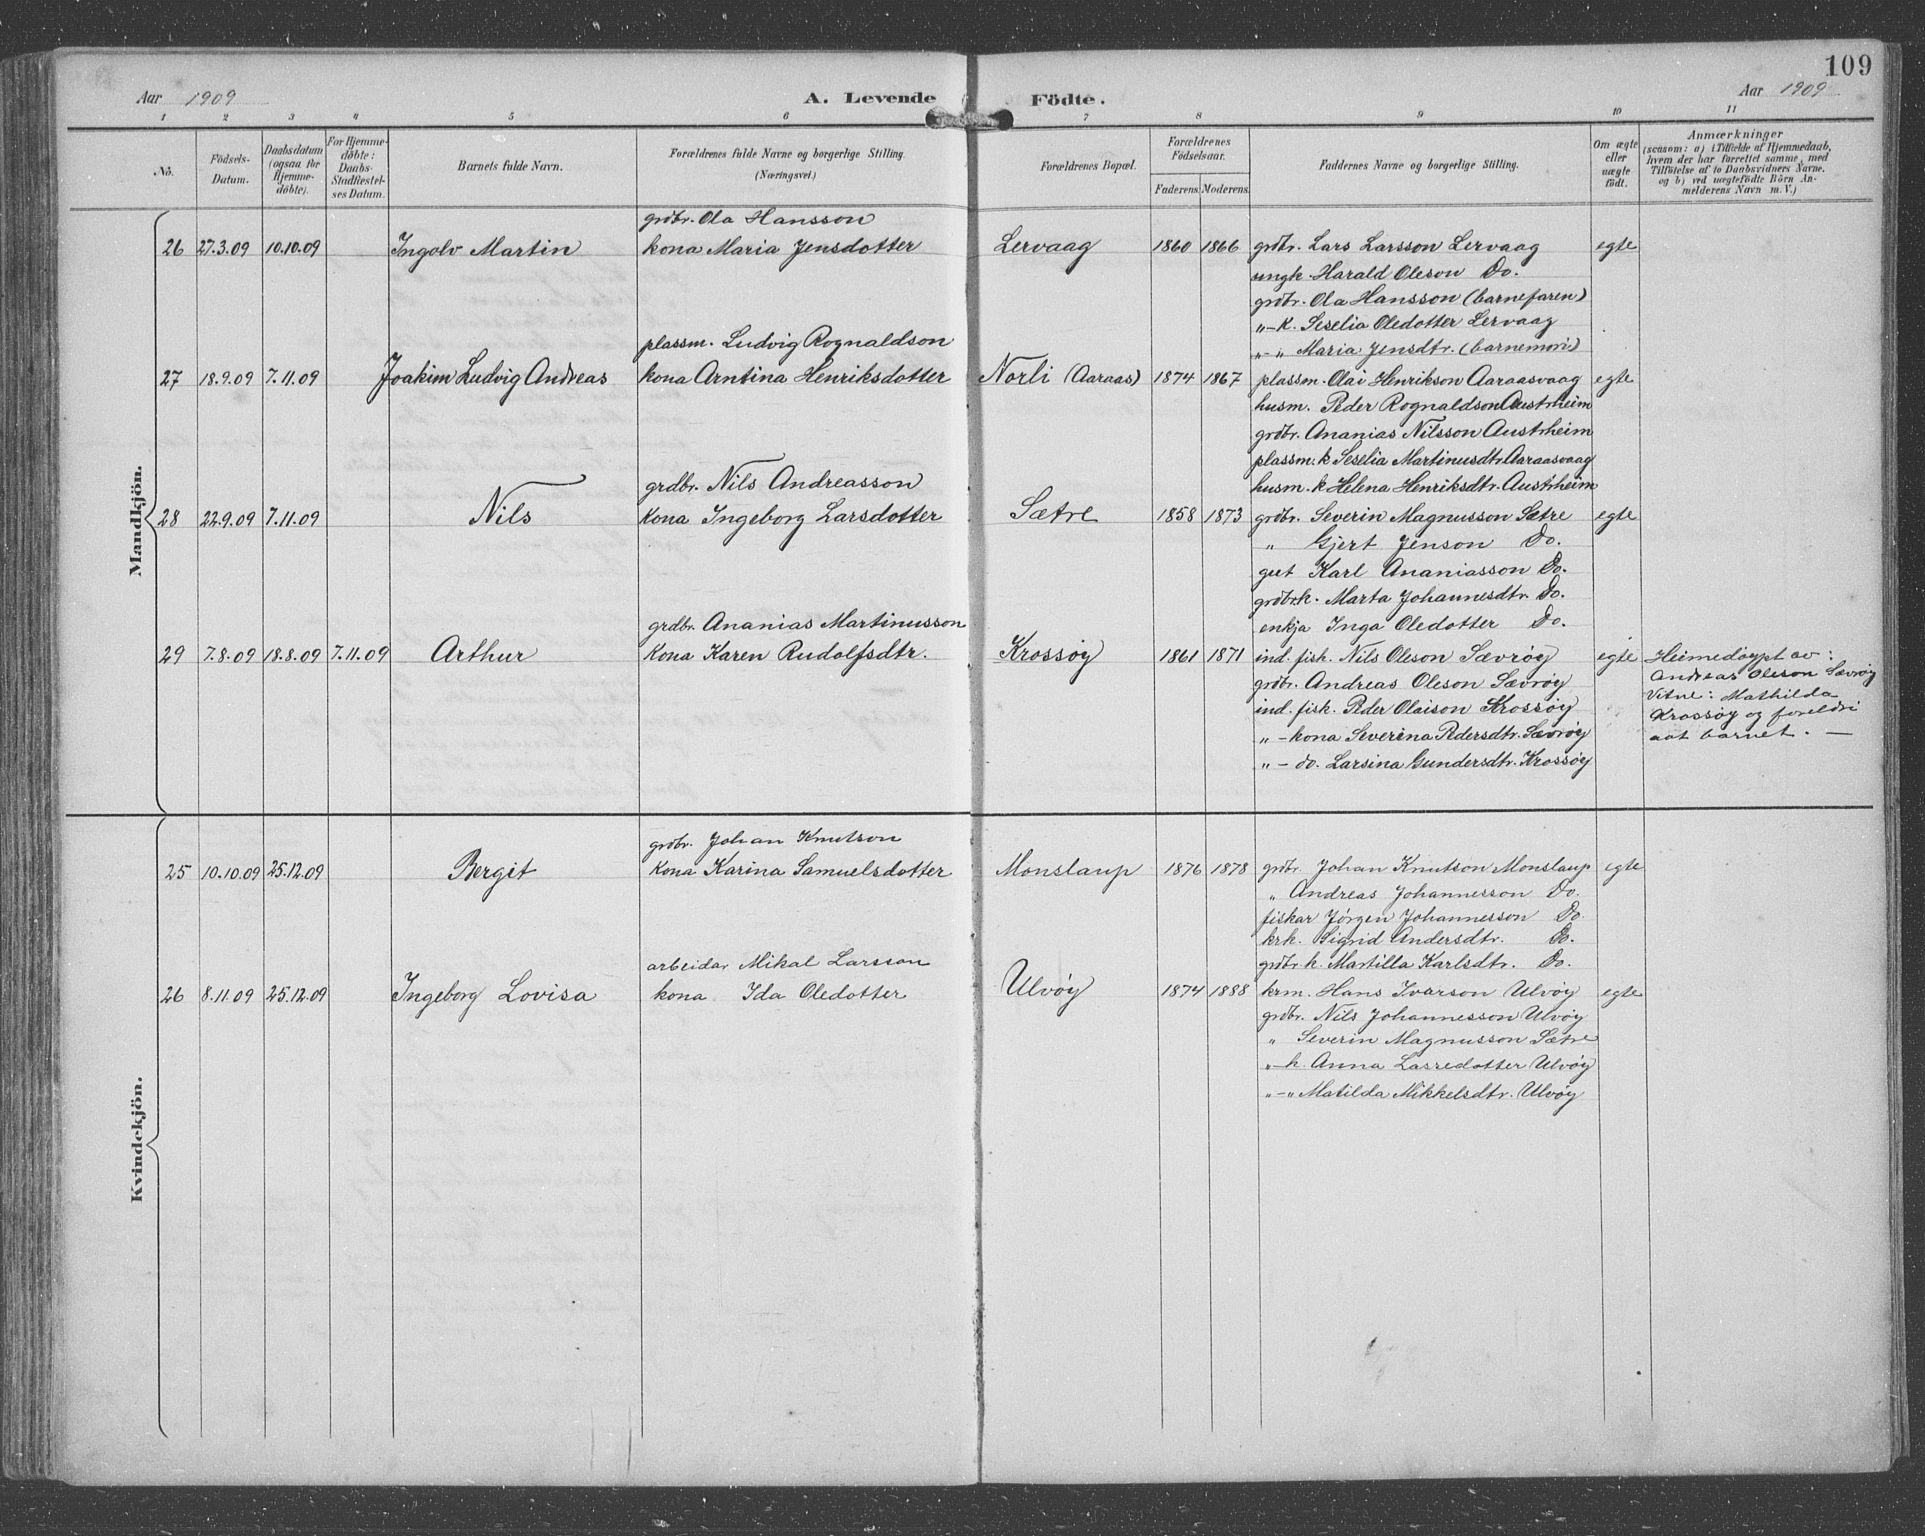 109
Aar 1909 A. Levende Födte. Aar 1909
1 2 3 4 5 6 7 8 9 10 11
No. Födsels-Datum. Daabsdatum (ogsaa for Hjemmedöbte). For Hjemmedöbte: Daabs-Stadfæstelses Datum. Barnets fulde Navn. Forældrenes fulde Navne og borgerlige Stilling. (Næringsvei.) Forældrenes Bopæl. Forældrenes Födselsaar. Faderens. Moderens. Faddernes Navne og borgerlige Stilling. Om ægte eller uægte födt. Anmærkninger (saasom: a) i Tilfælde af Hjemmedaab, hvem der har forrettet samme, med Tilföielse af to Daabsvidners Navne. og b) ved uægtefödte Börn Anmelderens Navn m. V.)
Mandkjön.
grdbr. Ola Hansson
26 27.3.09 10.10.09 Ingolv Martin kona Maria Jensdotter Lervaag 1860 1866 grdbr. Lars Larsson Lervaag egte
ungk. Harald Oleson Do.
grdbr. Ola Hansson (barnefaren)
„-k. Seselia Oledotter Lervaag
„-„ Maria Jensdtr. (barnemori)
plassm. Ludvig Rognaldson
27 18.9.09 7.11.09 Joakim Ludvig Andreas kona Arntina Henriksdotter Norli (Aaraas) 1874 1867 plassm. Olai Henrikson Aaraasvaag egte
husm. Peder Rognaldson Austrheim
grdbr. Ananias Nilsson Austrheim
plassm. k Seselia Martinusdtr. Aaraasvaag
husm. k Helena Henriksdtr. Austrheim
grdbr. Nils Andreasson
28 22.9.09 7.11.09 Nils kona Ingeborg Larsdotter Sætre 1858 1873 grdbr. Severin Magnusson Sætre egte
„ Gjert Jenson Do.
gut Karl Ananiasson Do.
grdbr.k. Marta Johannesdtr. Do.
enkja Inga Oledotter Do.
grdbr. Ananias Martinusson
29 7.8.09 18.8.09 7.11.09 Arthur kona Karen Rudolfsdtr. Krossøy 1861 1871 ind. fisk. Nils Oleson Sævrøy egte Heimedøypt av:
grdbr. Andreas Oleson Sævrøy Andreas Oleson Sævrøy
ind. fisk. Peder Olaison Krossøy Vitne: Mathilda
„ - kona Severina Pedersdtr. Sævrøy Krossøy og foreldri
„ - do. Larsina Gundersdtr. Krossøy aat barnet. —
Kvindekjön.
grdbr. Johan Knutson
25 10.10.09 25.12.09 Bergit kona Karina Samuelsdotter Monslaup 1876 1878 grdbr. Johan Knutson Monslaup egte
„ Andreas Johannesson Do.
fiskar Jørgen Johannesson Do.
krk. Sigrid Andersdtr. Do.
grdbr k. Martilla Karlsdtr. Do.
arbeidar Mikal Larsson
26 8.11.09 25.12.09 Ingeborg Lovisa kona Ida Oledotter Ulvøy 1874 1888 krm. Hans Ivarson Ulvøy egte
grdbr. Nils Johannesson Ulvøy
„ Severin Magnusson Sætre
„-k. Anna Lasredotter Ulvøy
„-„ Matilda Mikkelsdtr. Ulvøy